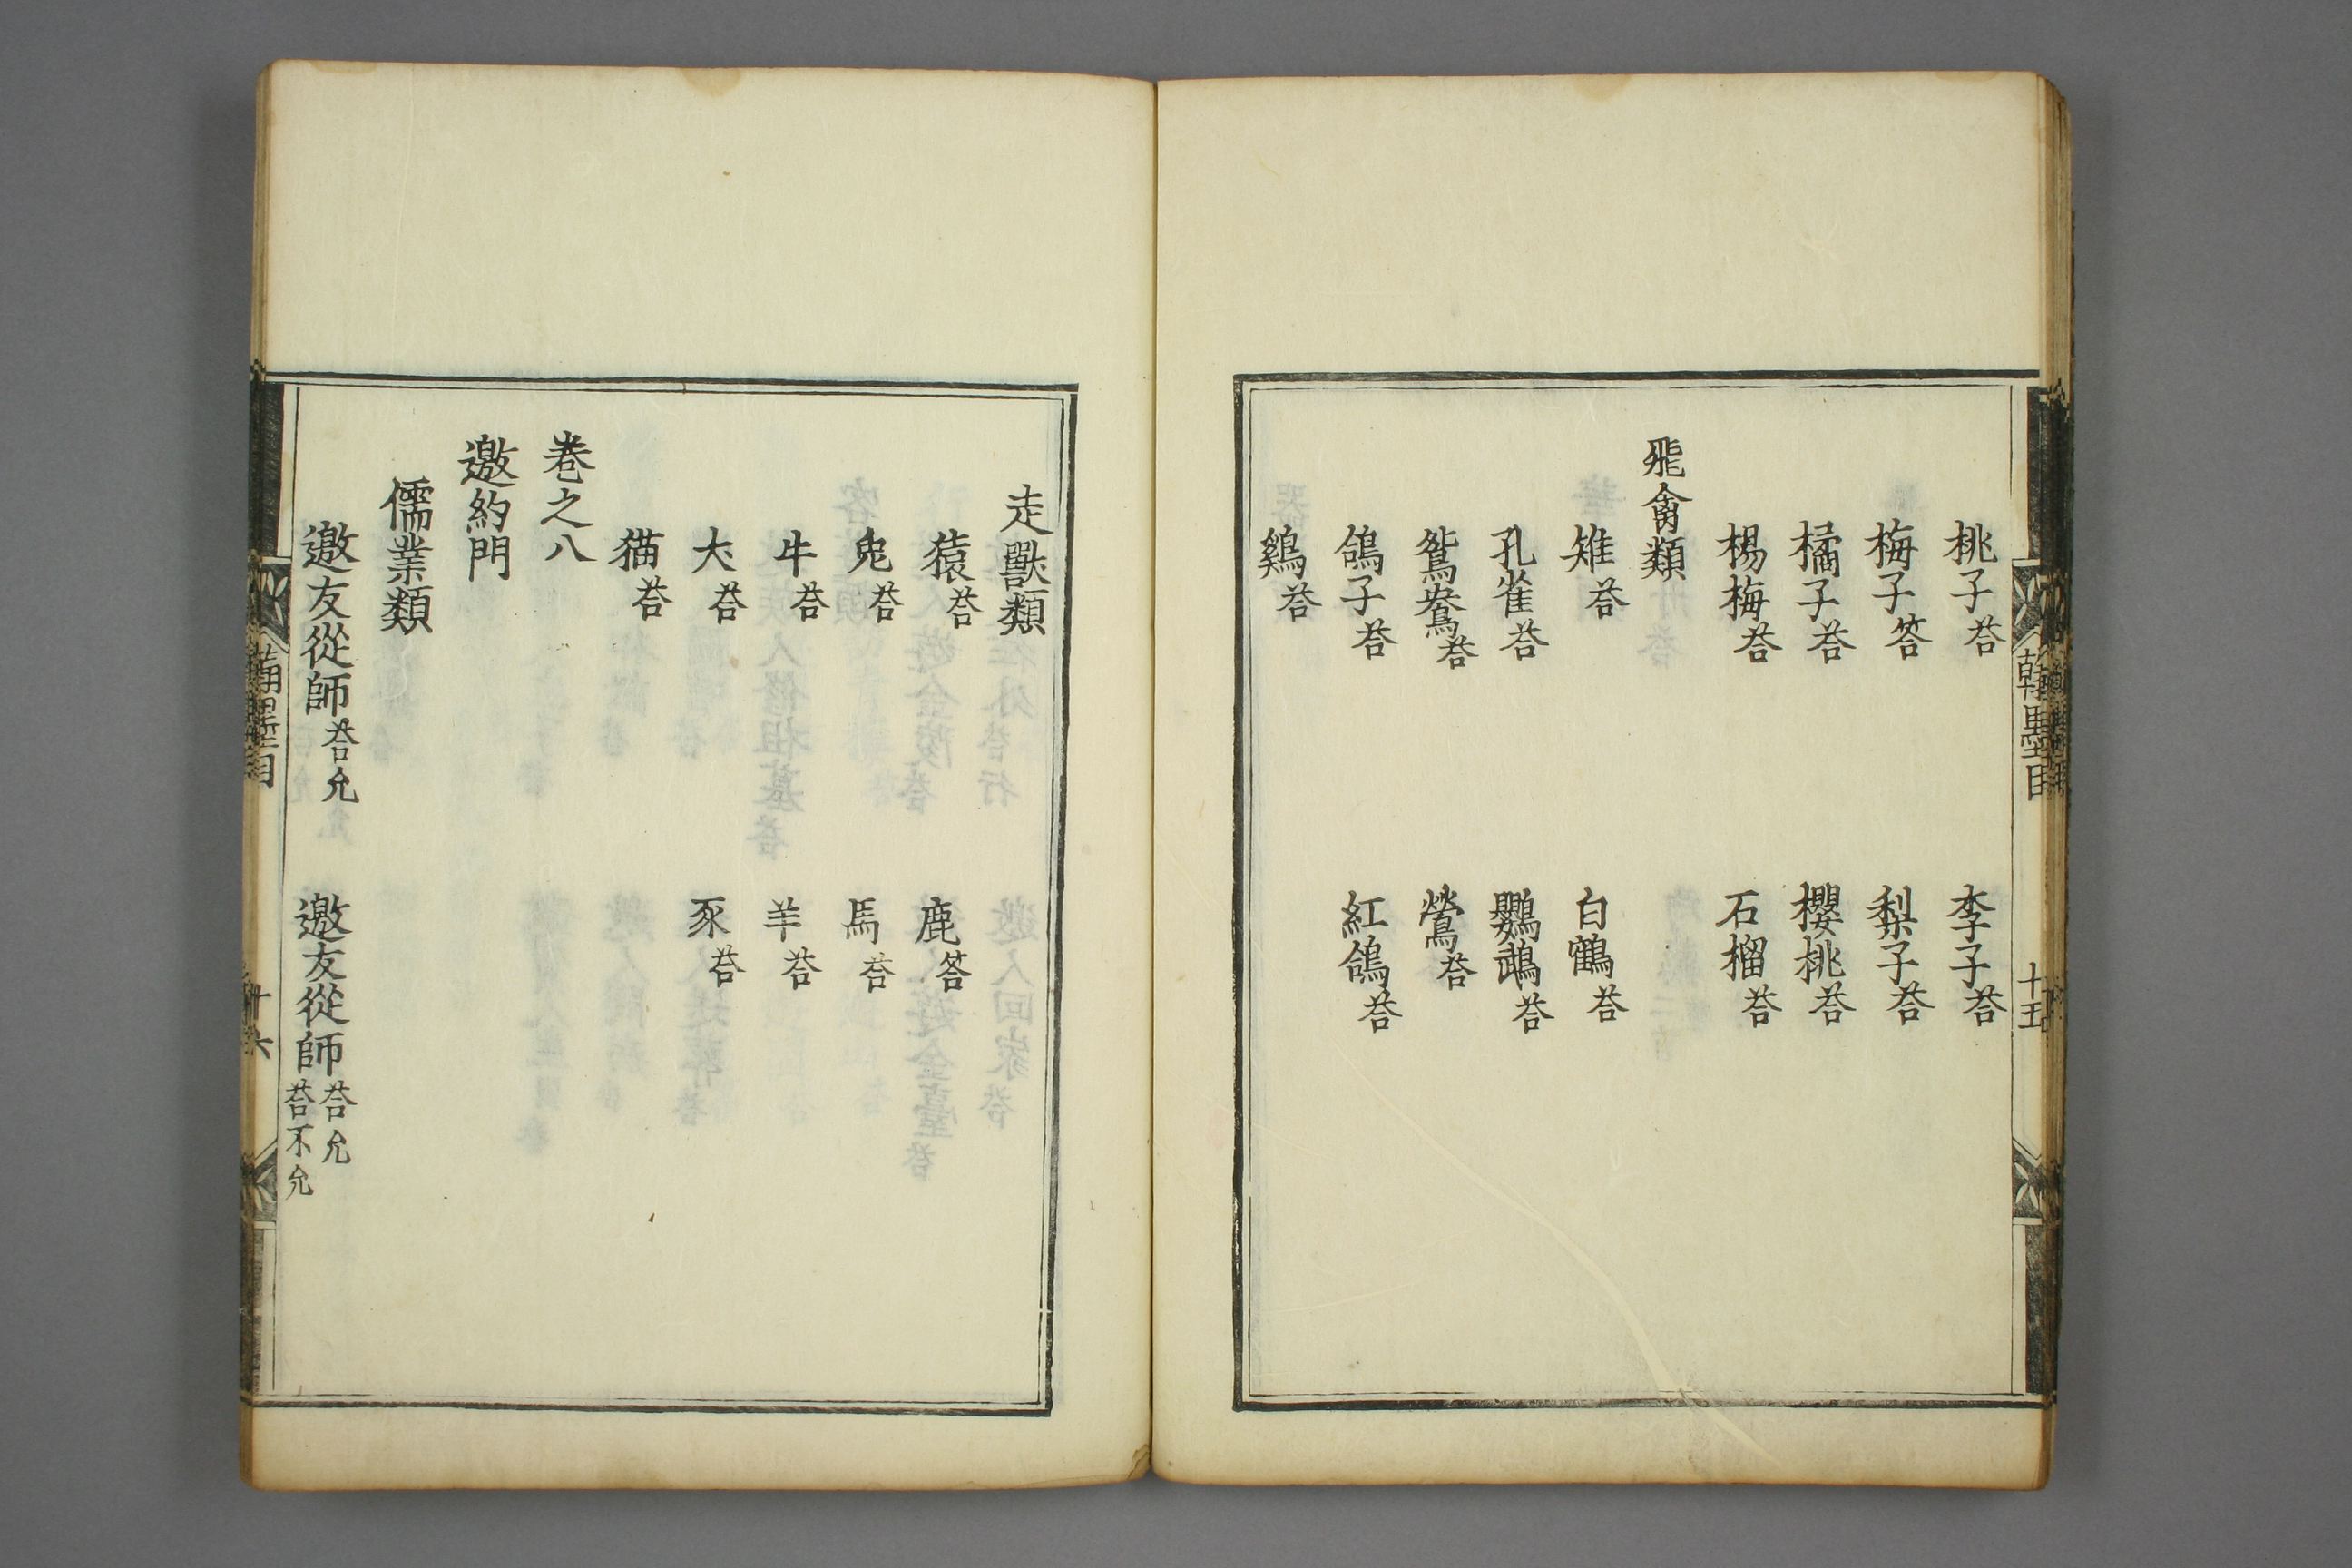 桃子荅　李子荅
梅子答　梨子荅
橘子荅　櫻桃荅
楊梅荅　石榴荅
飛禽類
雉荅　白鶴荅
孔雀荅　鸚鵡荅
鴛鴦荅　鶯荅
鴿子荅　紅鴿荅
鷄荅
翰墨目
十五
走獸類
猿荅　鹿答
兔荅　馬荅
牛荅　羊荅
犬荅　豕荅
猫荅
卷之八
邀約門
儒業類
邀友從師荅允　邀友從師荅允荅不允
墨目
十六